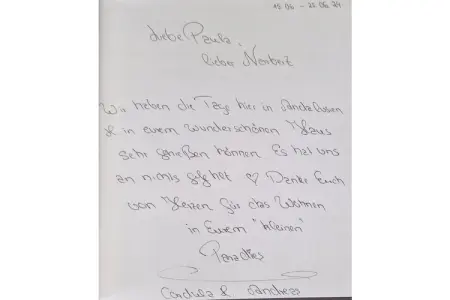 15.06 - 25.06.24
Liebe Paula,
lieber Norbert
Wir haben die Tage hier in Andalusien
& in eurem wunderschönen Haus
sehr genießen können. Es hat uns
an nichts gefehlt ♡ Danke Euch
von Herzen für das Wohnen
in Eurem "kleinen"
Paradies
Cordula & Andreas